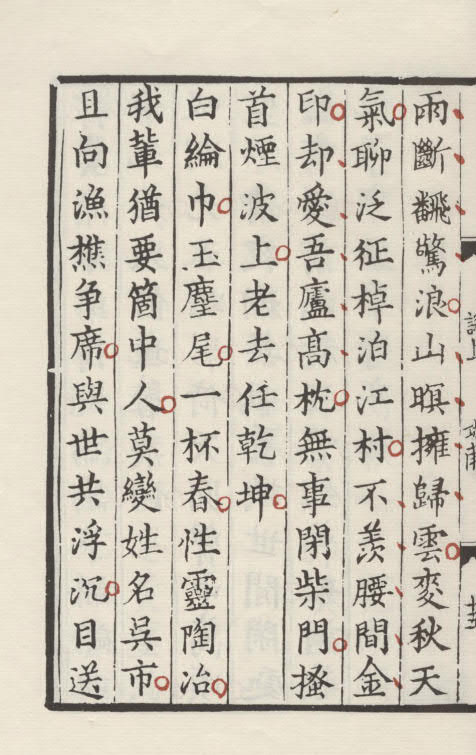 雨斷翻驚浪山暝擁歸雲麥秋天
氣聊泛征棹泊江村不羨腰間金
印却愛吾廬高枕無事閉柴門搔
首煙波上老去任乾坤
白綸巾玉麈尾一杯春性靈陶冶
我輩猶要箇中人莫變姓名吳市
且向漁樵争席與世共浮沉目送